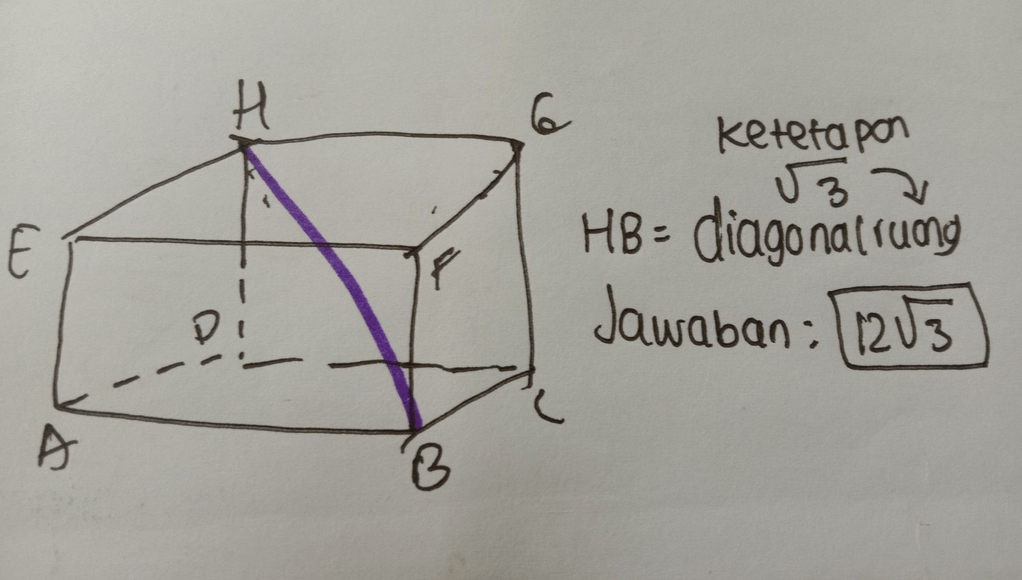 H
G
E
F
D
A
B
C
Ketetapan
√3
HB = diagonal ruang
Jawaban : 12√3